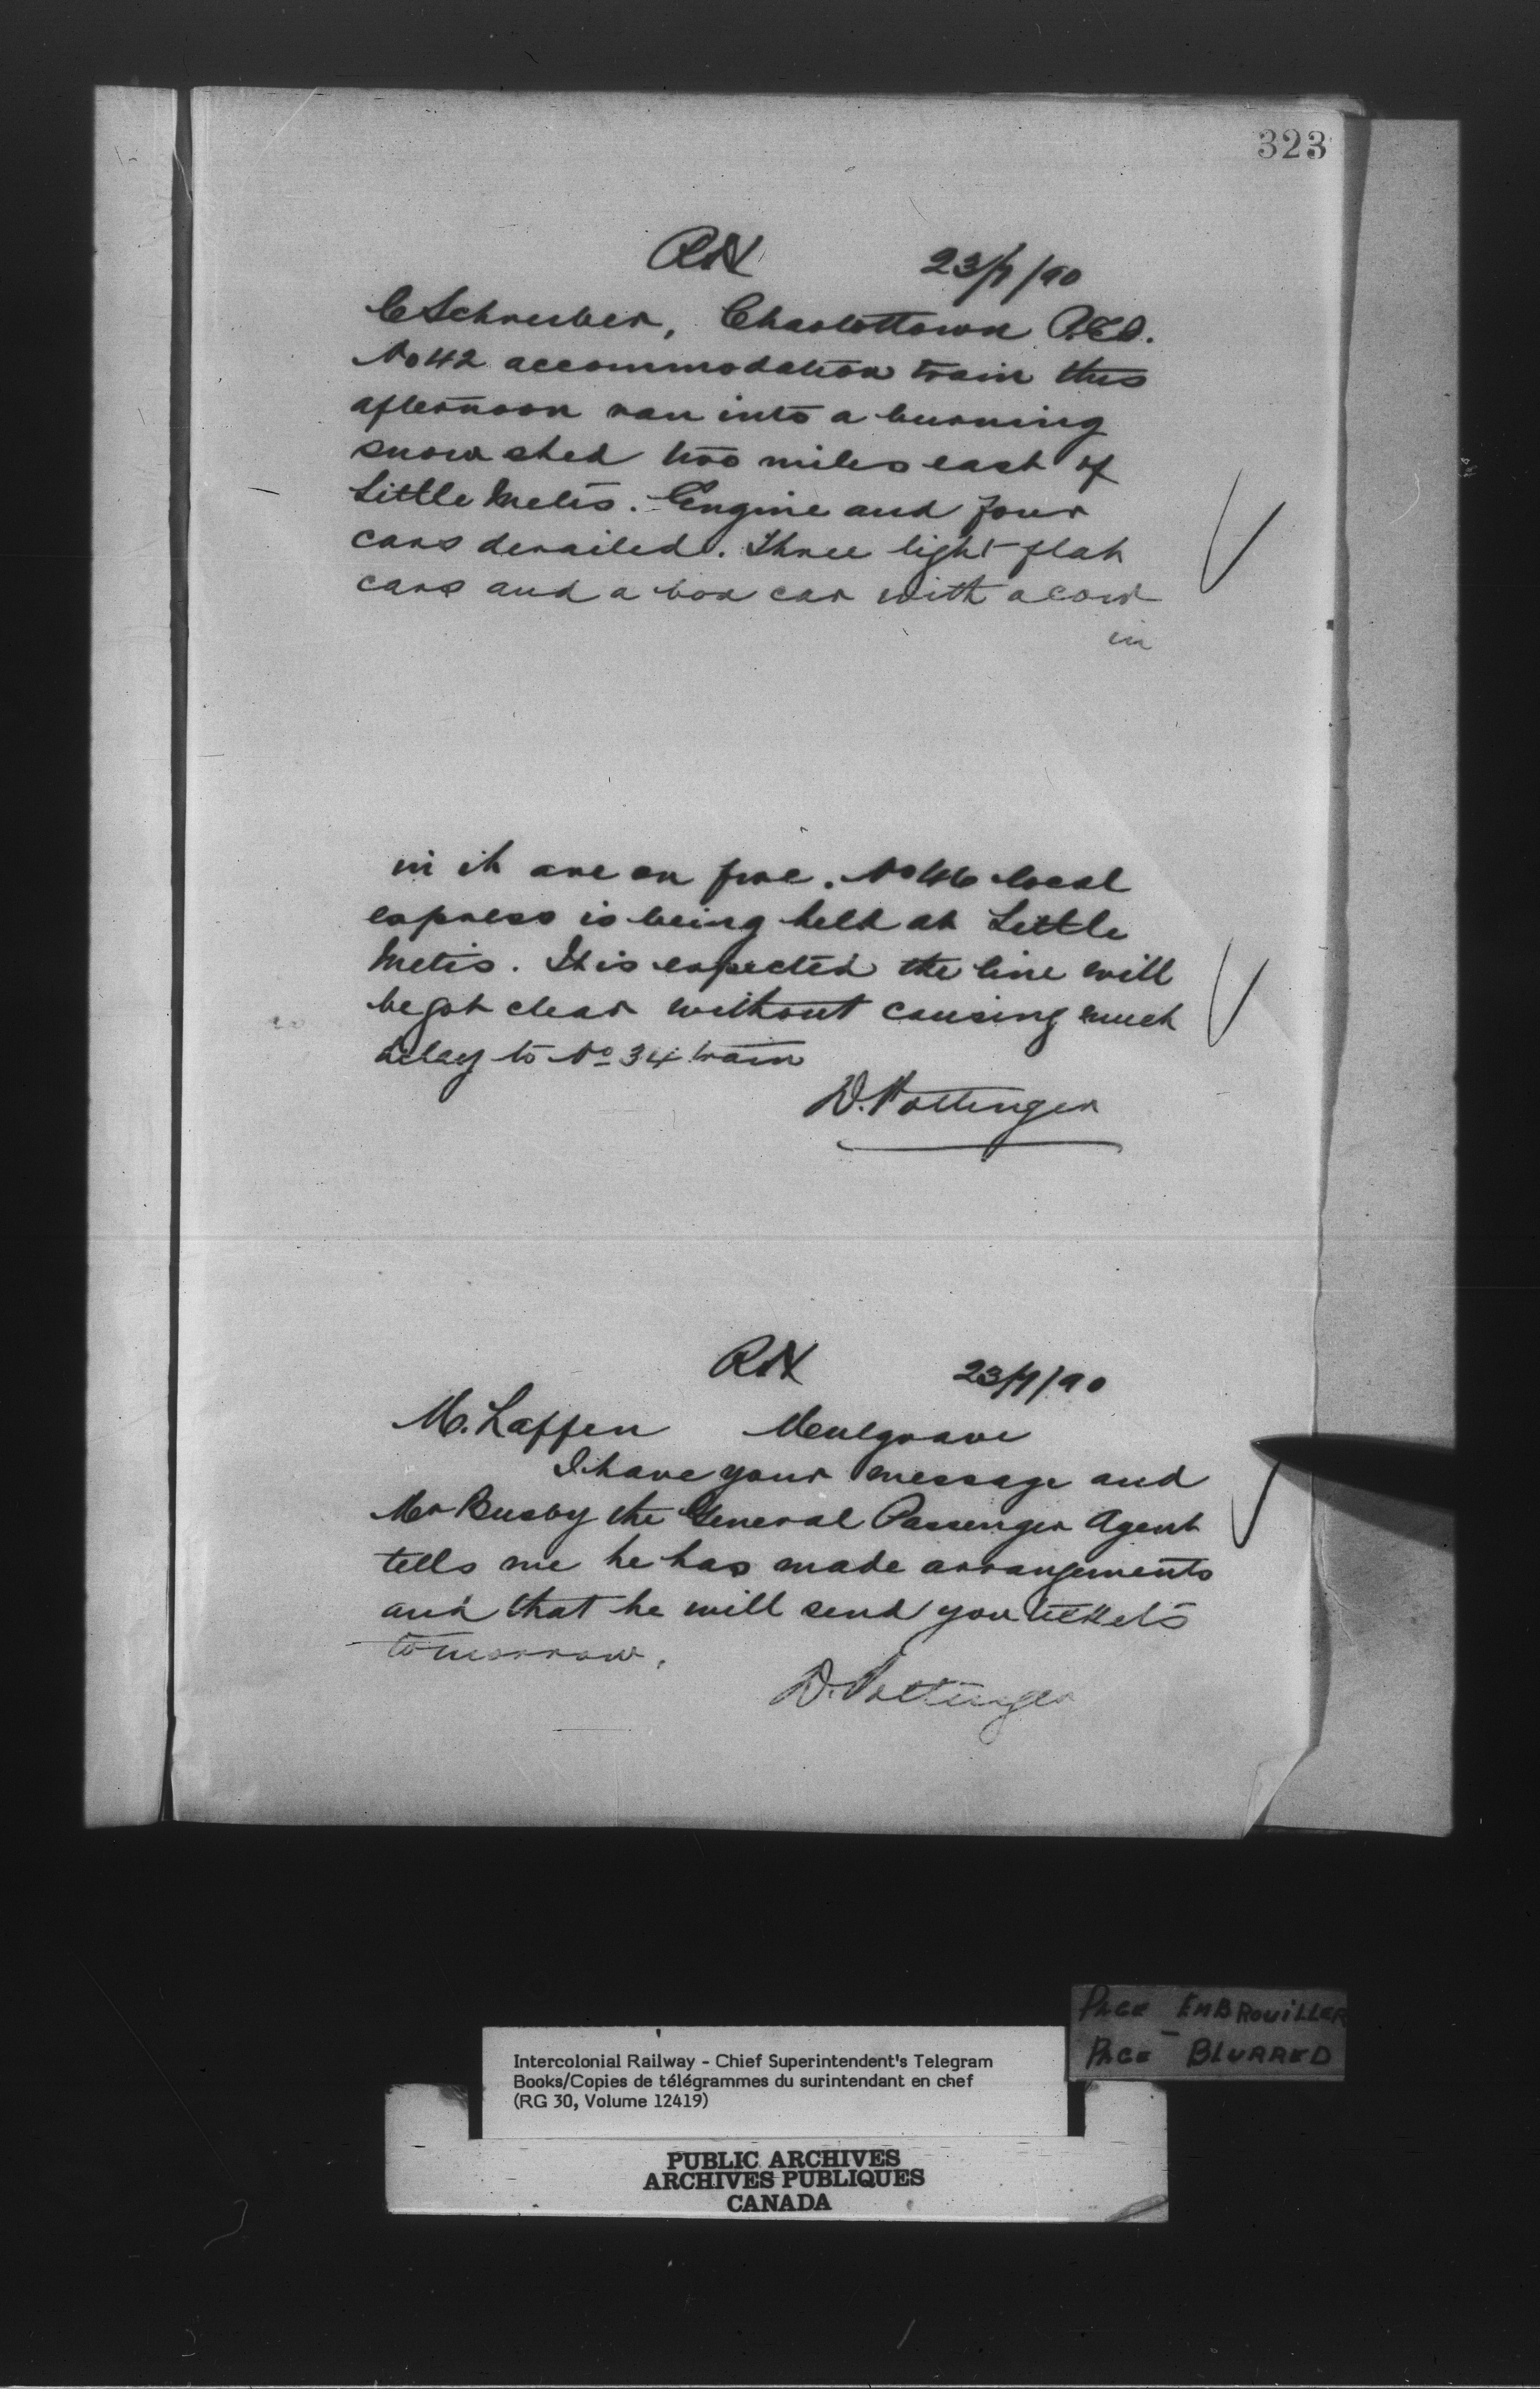 323
RN 23/7/90
C Schreiber, Charlottown P.E.I.
No 42 accommodation train this
afternoon ran into a burning
snow shed two miles east of
Little Metis. Engine and four
cars derailed. Three light flat
cars and a box car with a cow
in
in it are on fire. No 46 local
express is being held at Little
Metis. It is expected the line will
be got clear without causing much
delay to No 34 train
D. Pottinger
RN 23/7/90
M. Laffen Mulgrave
I have your message and
Mr Busby the General Passenger Agent
tells me he has made arrangements
and that he will send you tickets
tomorrow.
D. Pottinger
PAGE EMBROUILLER
PAGE BLURRED
Intercolonial Railway - Chief Superintendent's Telegram
Books/Copies de télégrammes du surintendant en chef
(RG 30, Volume 12419)
PUBLIC ARCHIVES
ARCHIVES PUBLIQUES
CANADA